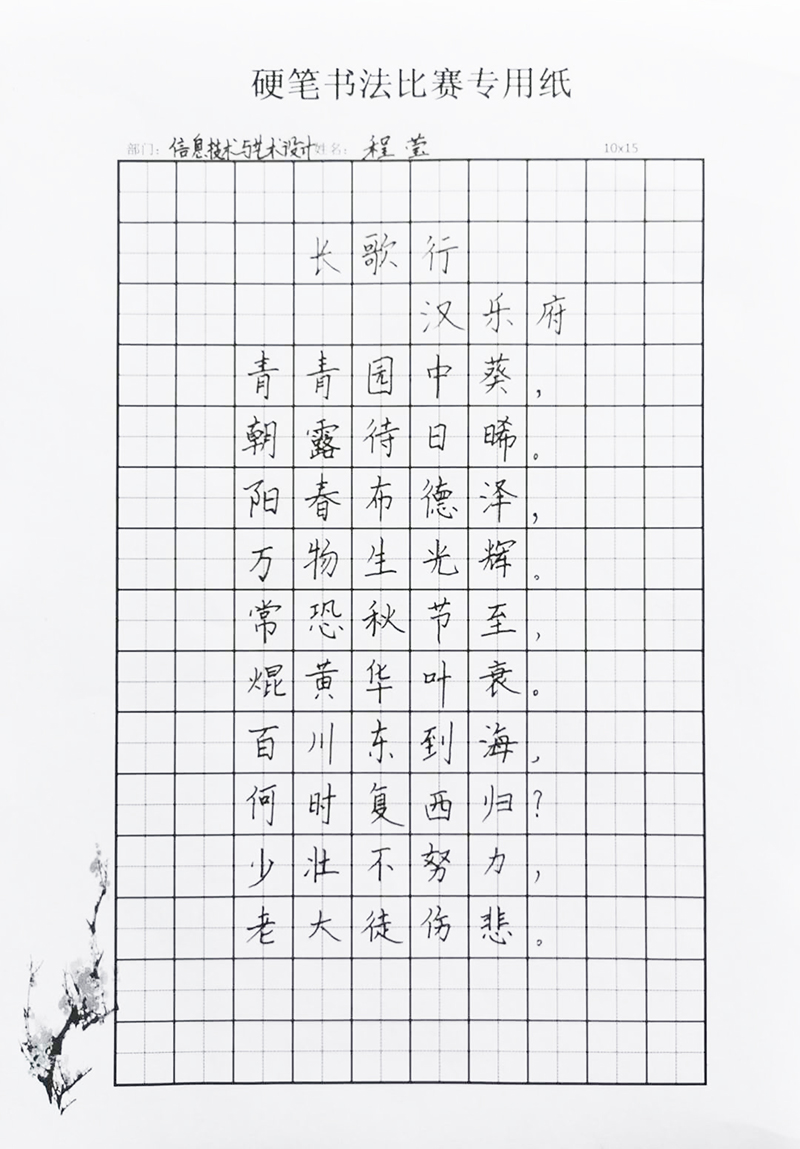 硬笔书法比赛专用纸
部门：信息技术与艺术设计 姓名：程莹 10x15
长歌行
汉乐府
青青园中葵，
朝露待日晞。
阳春布德泽，
万物生光辉。
常恐秋节至，
焜黄华叶衰。
百川东到海，
何时复西归？
少壮不努力，
老大徒伤悲。